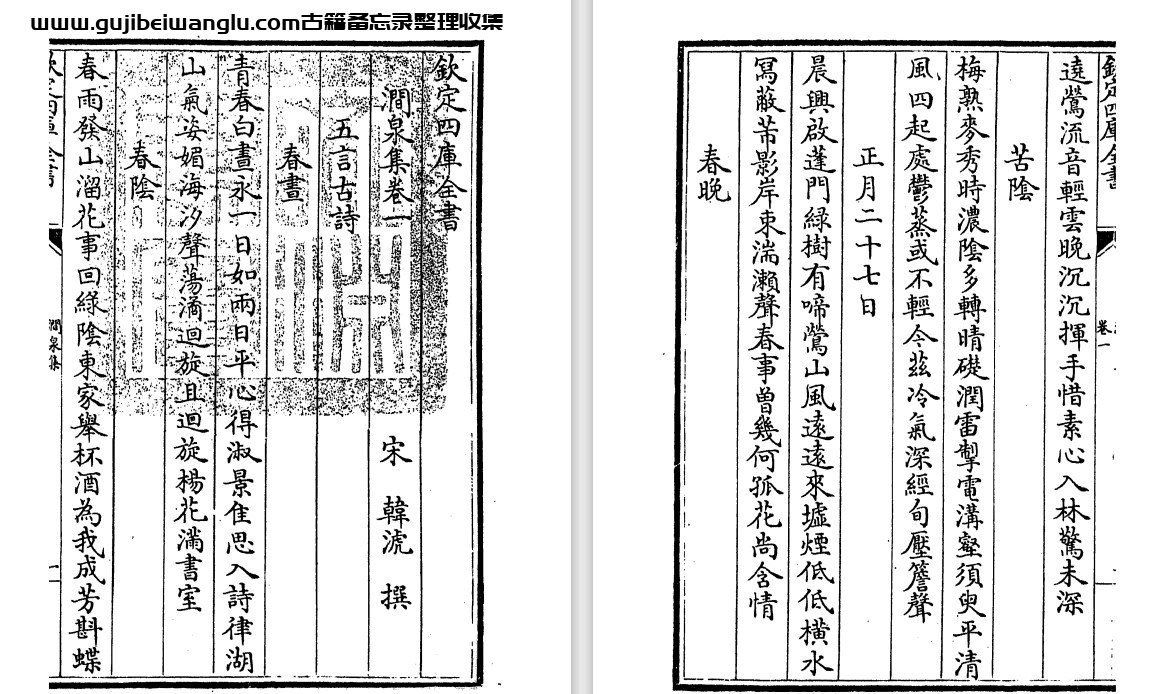 www.gujibeiwanglu.com古籍备忘录整理收集
欽定四庫全書
澗泉集卷一
宋 韓淲 撰
五言古詩
春晝
青春白晝永一日如兩日平心得淑景隹思入詩律湖
山氣姿媚海汐聲蕩潏迴旋且迴旋楊花滿書室
春陰
春雨發山溜花事回綠陰東家舉杯酒為我成芳斟蝶
澗泉集
遠鶯流音輕雲晚沉沉揮手惜素心入林驚未深
苦陰
梅熟麥秀時濃陰多轉晴礎潤雷掣電溝壑須臾平清
風四起處鬱蒸或不輕今茲冷氣深經旬壓簷聲
正月二十七日
晨興啟蓬門緑樹有啼鶯山風逺逺來墟煙低低橫水
冩蔽芾影岸束湍瀨聲春事曽幾何孤花尚含情
春晚
欽定四庫全書
卷一